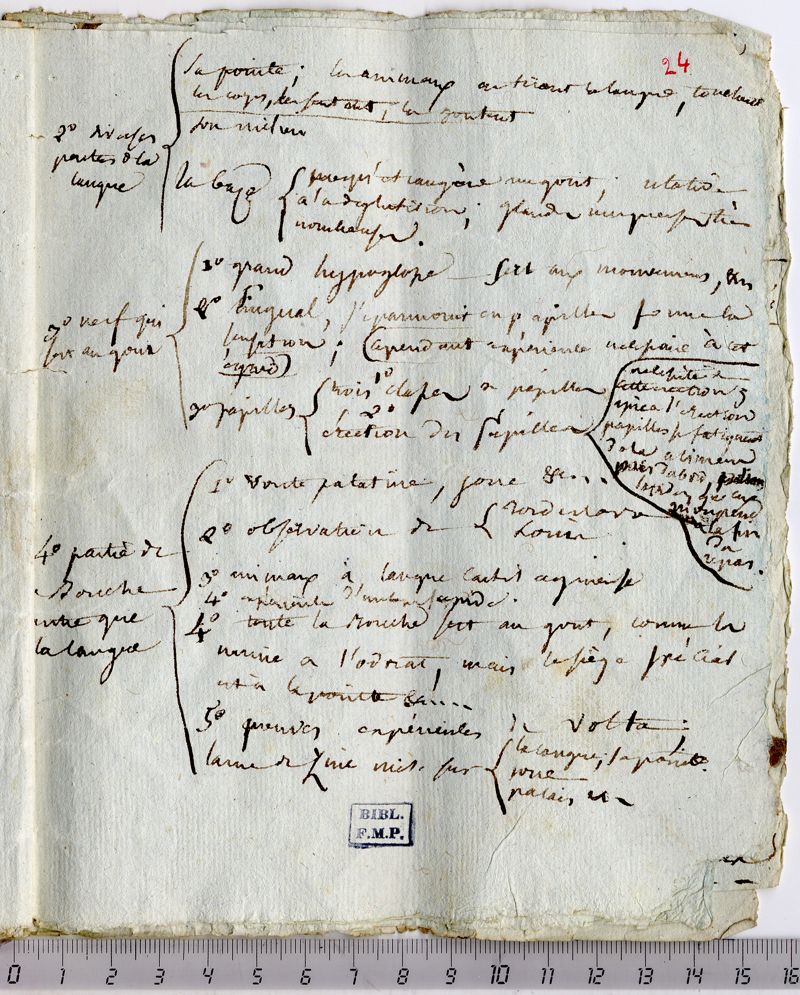 24
sa pointe; les animaux en tirant la langue, touchent
les corps, les sentent, les goutent
son milieu
2° diverses
parties de la
langue
la base
presqu'étrangère au gout; relative
à la déglutition; glandes muqueuses très
nombreuses.
3° nerf qui
sert au gout
1° grand hypoglosse sert aux mouvemens,
2° lingual, s'epanouit en papilles forme la
sensation; (cependant expérience nécessaire à cet
égard)
3° papilles
trois 1° classes de papilles
2°
érection des papilles
nécessité de
cette érection;
après l'érection
papilles se fatiguent
de la
d'abord
la fin
du
repas.
4° partie de
Bouche
autre que
la langue
1° voute palatine, joue &c...
2° observation de
3° animaux à langue cartilagineuse
4° expérience d'un corps sapide.
4° toute la Bouche sert au gout, comme la
narine a l'odorat, mais le siège spécial
est à la pointe &c....
5° preuves expériences de Volta;
lame de Zinc mise sur
la langue, sa pointe.
joue
palais &c
BIBL.
F.M.P.
0 1 2 3 4 5 6 7 8 9 10 11 12 13 14 15 16